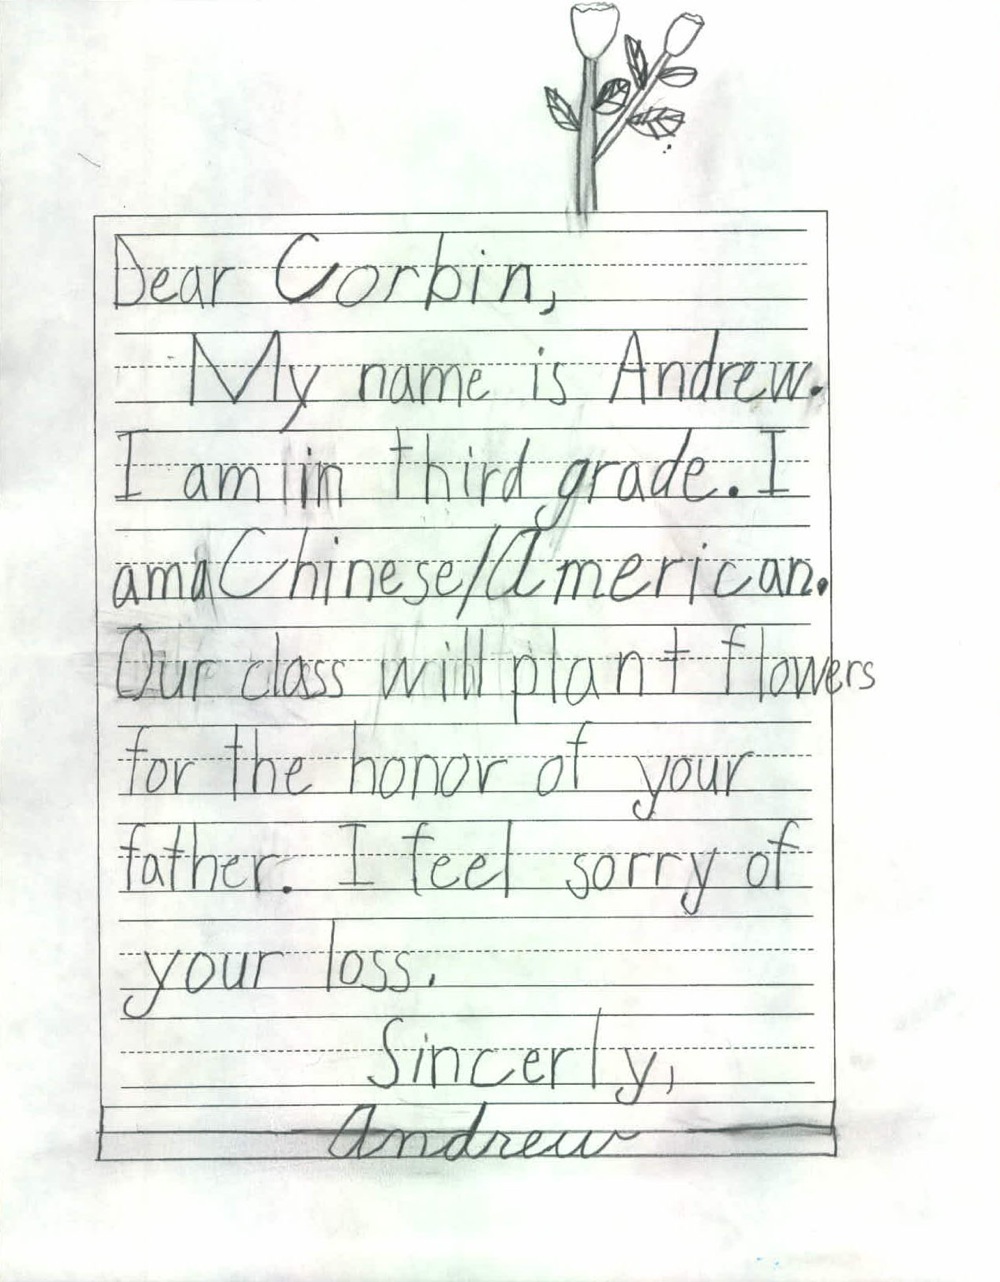 Dear Corbin,
My name is Andrew.
I am in third grade. I
am a Chinese/American.
Our class will plant flowers
for the honor of your
father. I feel sorry of
your loss.
Sincerly,
Andrew